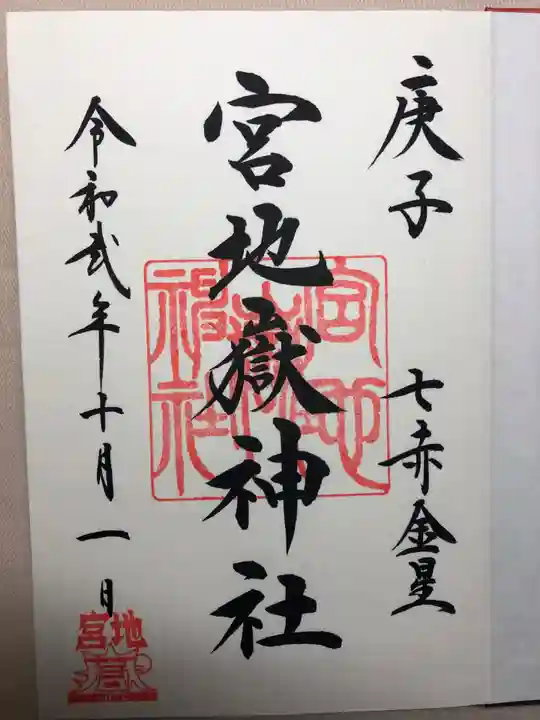 庚子 七赤金星
宮地嶽神社
令和弐年十月一日
宮地嶽神社
宮地嶽